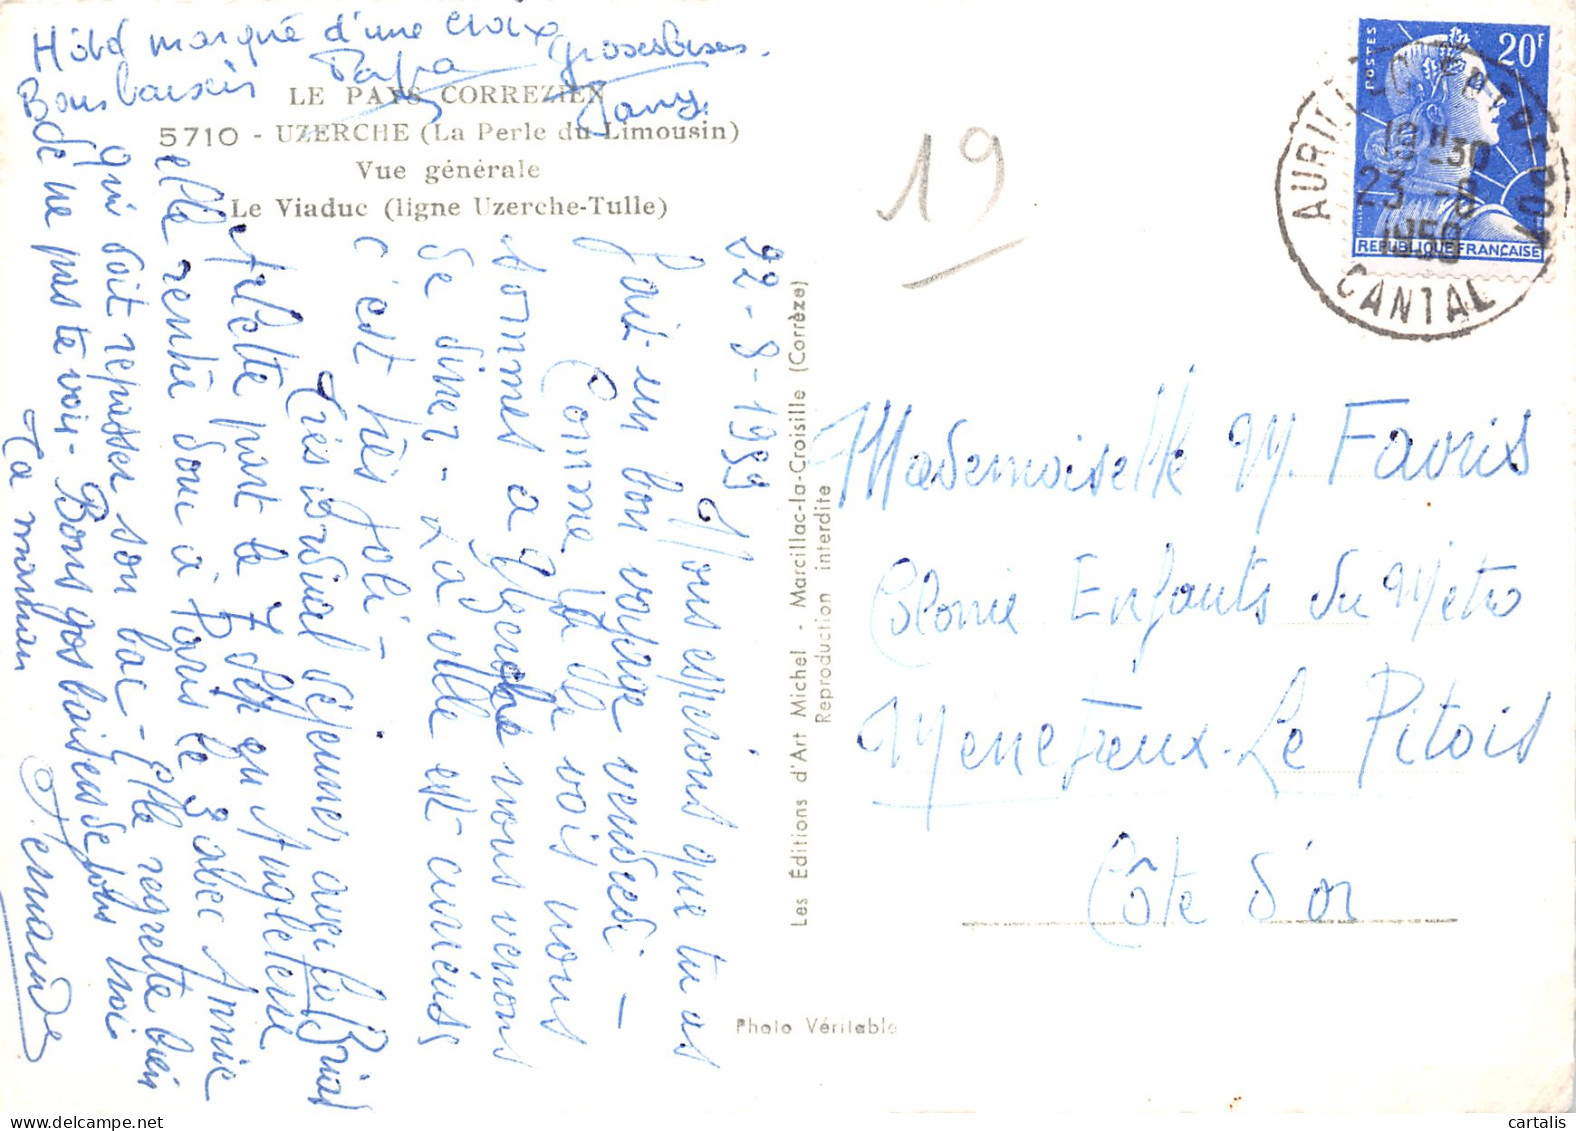 Hôtel marqué d'une croix
Bons baisers Papa
grosses bises.
Dany.
LE PAYS CORREZIEN
5710 - UZERCHE (La Perle du Limousin)
Vue générale
Le Viaduc (ligne Uzerche-Tulle)
22-8-1959
Nous espérons que tu as
fait un bon voyage vendredi -
Comme tu le vois nous
sommes à Uzerche nous venons
de diner - La ville est curieuse
c'est très joli -
Très cordial déjeuner avec
Arlette part le 7 Sep en Angleterre
elle rentre donc à Paris le 3 avec Annie
qui doit repasser son bac - Elle regrette bien
de ne pas te voir - Bons gros baisers de tous trois
Ta maman
Fernande
Les Éditions d'Art Michel - Marcillac-la-Croisille (Corrèze)
Reproduction interdite
Photo Véritable
19
POSTES
20F
REPUBLIQUE FRANÇAISE
19H30
23-8
1959
CANTAL
Mademoiselle M. Favris
Colonie Enfants du Métro
Menetreux-Le Pitois
Côte d'or
cartalis